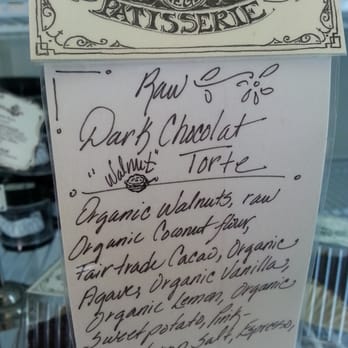 PATISSERIE
Raw
Dark Chocolat
"Walnut" Torte
Organic Walnuts, raw
Organic Coconut flour,
Fair trade Cacao, Organic
Agave, Organic Vanilla,
Organic Lemon, Organic
Sweet potato, Pink
Salt, Espresso,